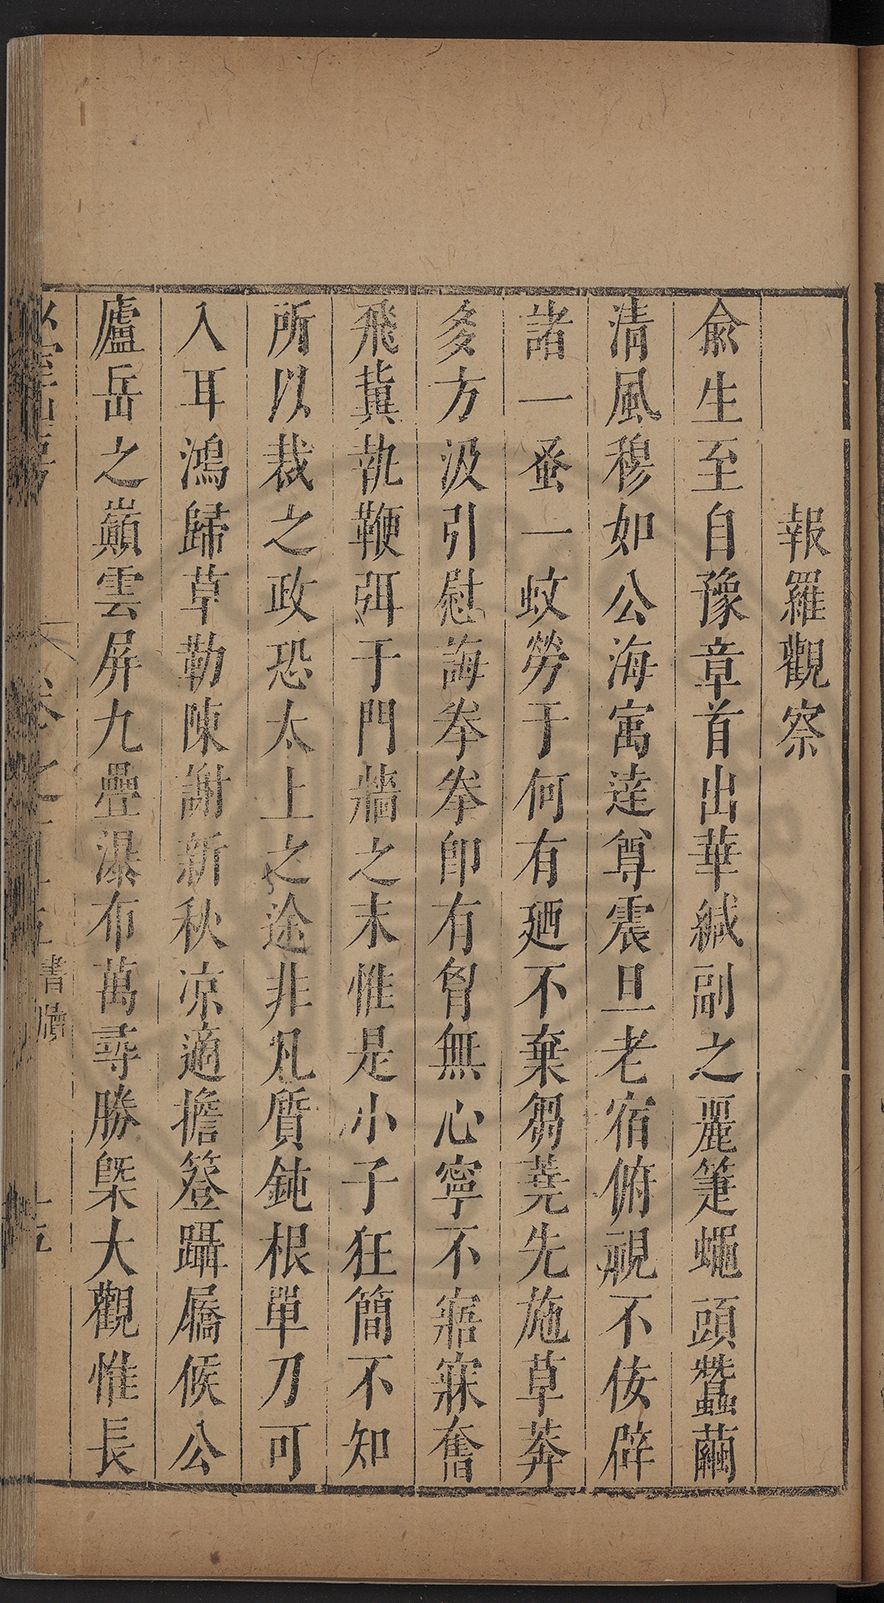 報羅觀察
俞生至自豫章首出華緘副之麗箑蠅頭蠶繭
清風穆如公海寓達尊震旦老宿俯視不佞辟
諸一蚤一蚊勞于何有廼不棄芻蕘先施草莽
多方汲引慰誨拳拳卽有胷無心寧不寤寐奮
飛冀執鞭弭于門牆之末惟是小子狂簡不知
所以裁之政恐太上之途非凡質鈍根單刀可
入耳鴻歸草勒陳謝新秋凉適擔簦躡屩候公
廬岳之巔雲屏九疊瀑布萬尋勝槩大觀惟長
卷之
書牘
十五